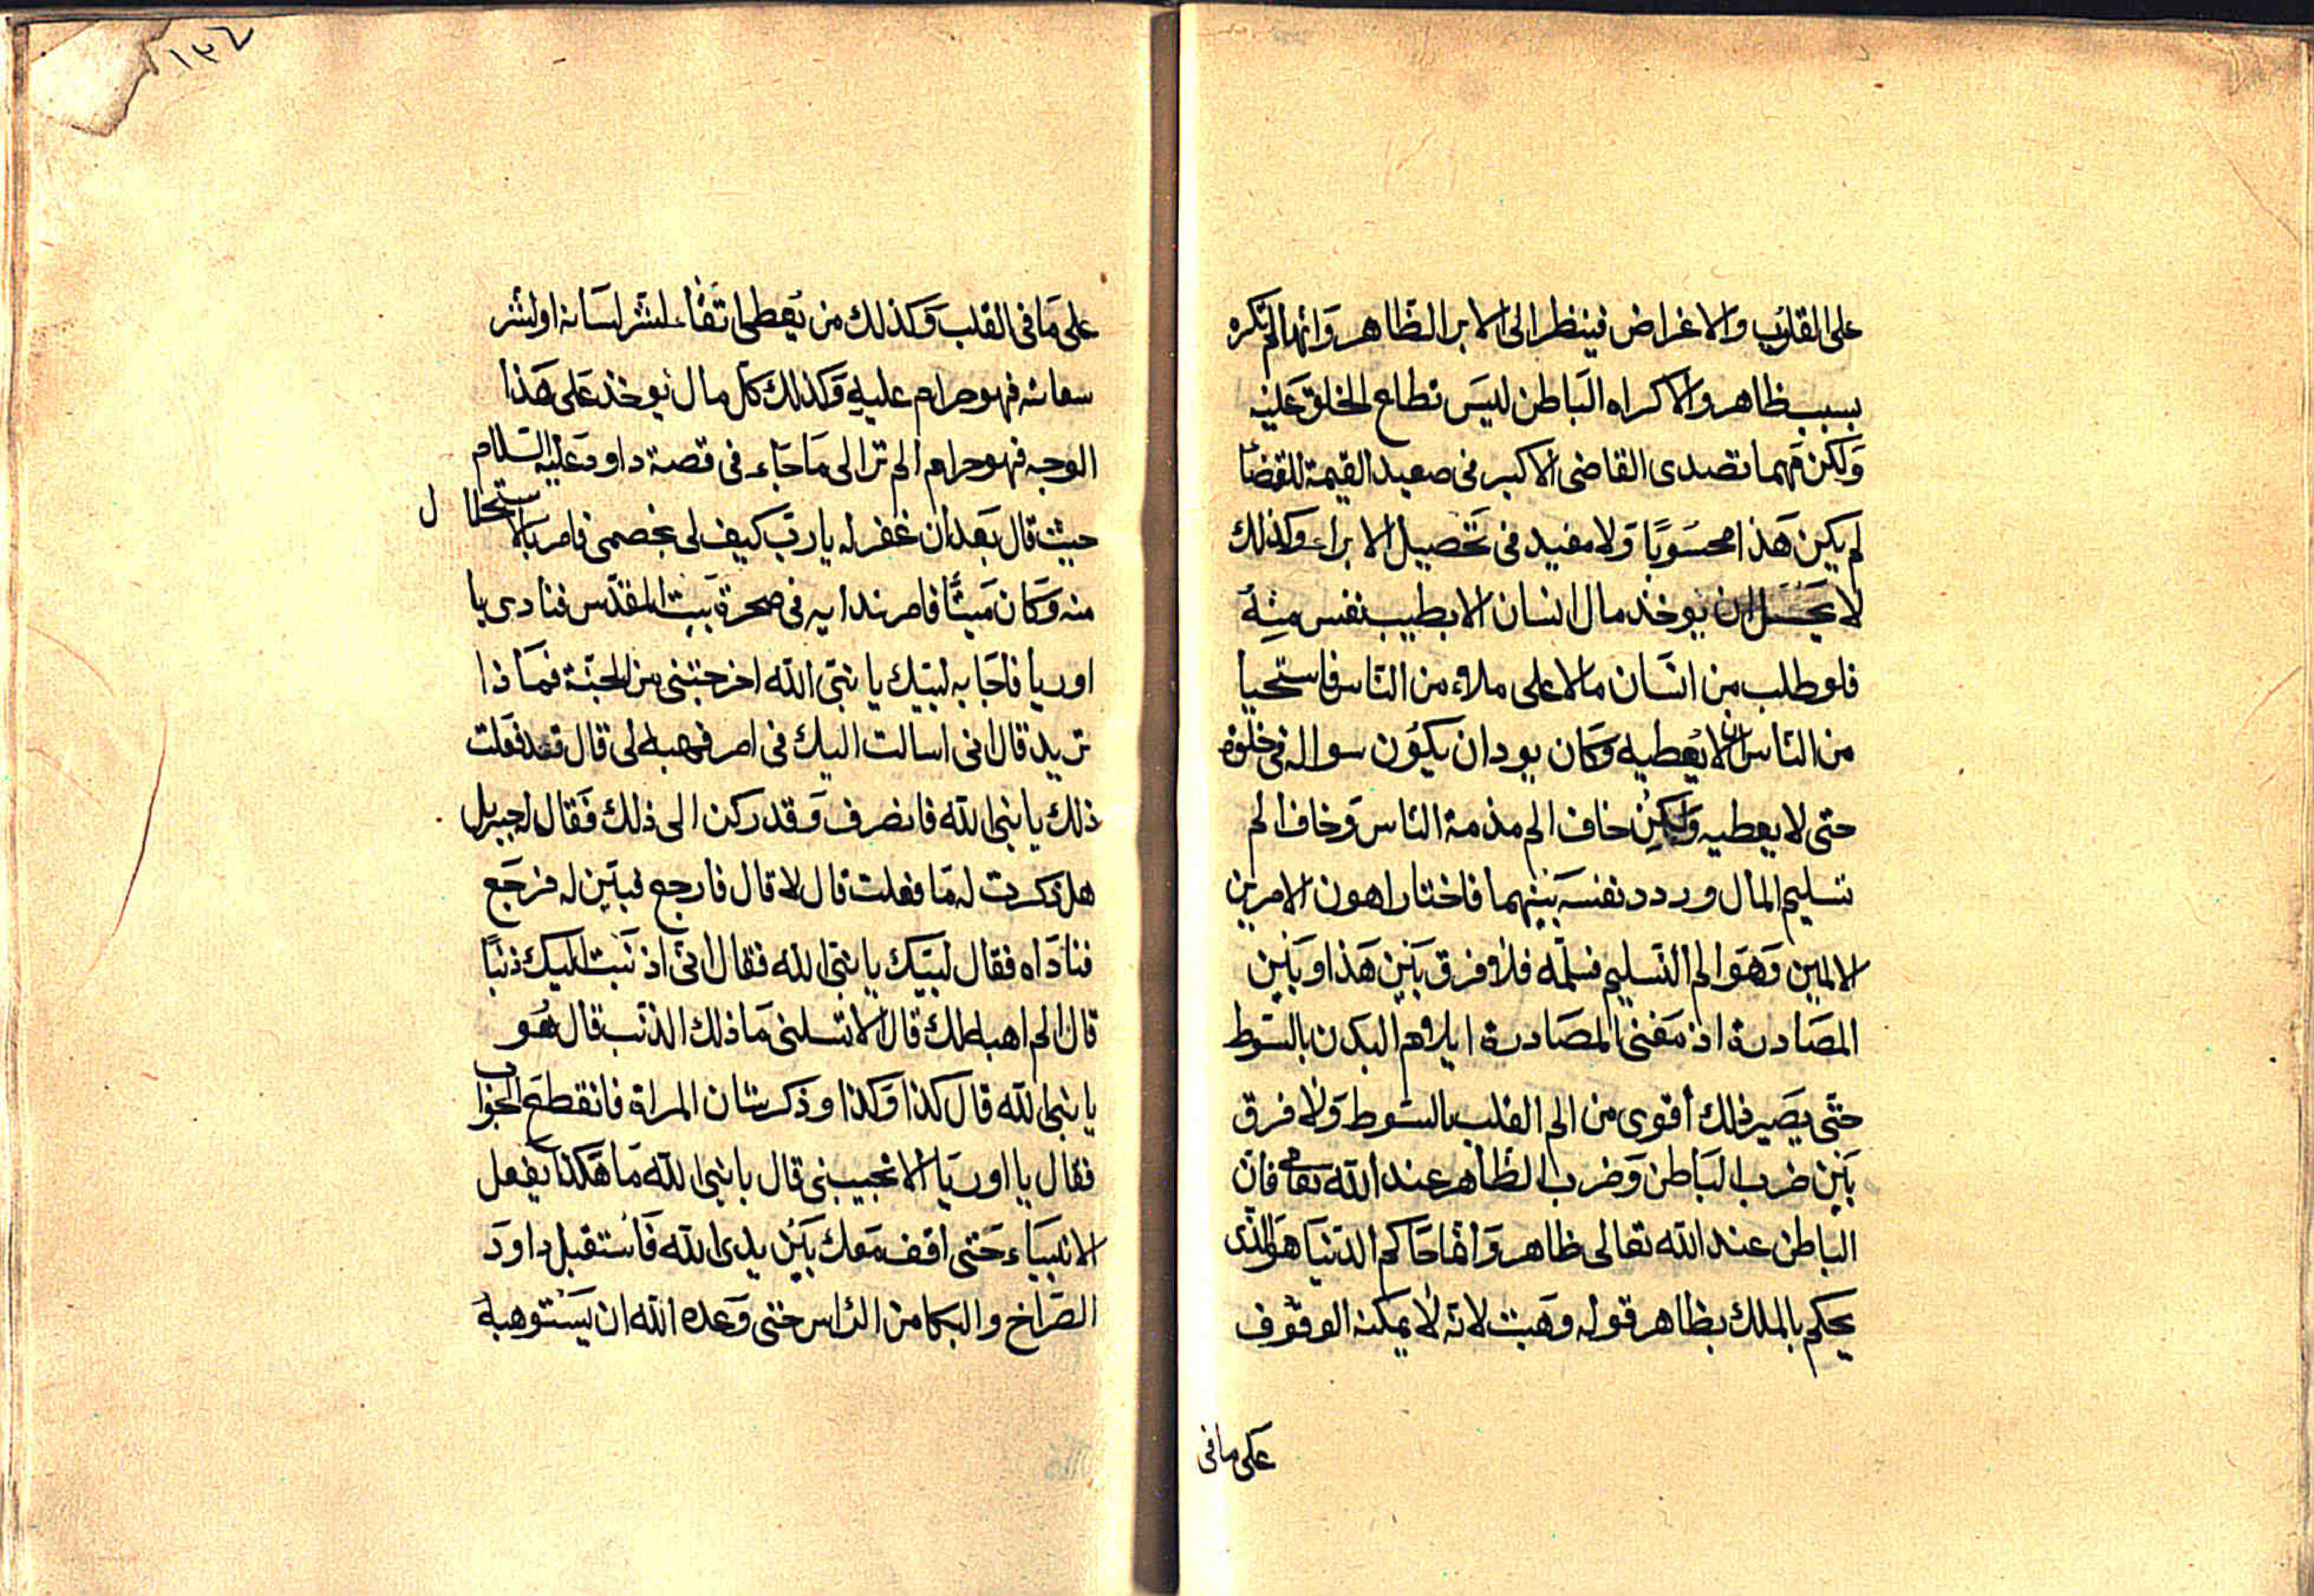 على القلوب والاغراض فينظر الى الابر الظاهر وانها لم تكره
بسبب ظاهر والاكراه الباطن ليس تطلع الخلق عليه
ولكن مهما تصدى القاضى الاكبر فى صعيد القيمة للقضا
لم يكن هذا محسوبًا ولا مفيد فى تحصيل الابراء وكذلك
لا يحل ان يوخذ مال انسان الا بطيب نفس منه
فلو طلب من انسان مالا على ملاء من الناس فاستحيا
من الناس ان لا يعطيه وكان يود ان يكون سواله فى خلوة
حتى لا يعطيه ولكن خاف الم مذمة الناس وخاف الم
تسليم المال وردد نفسه بينهما فاختار اهون الامرين
الالمين وهو الم التسليم فسلمه فلا فرق بين هذا وبين
المصادرة اذ معنى المصادرة ايلام البدن بالسوط
حتى يصير ذلك أقوى من الم القلب بالسوط ولا فرق
بين ضرب الباطن وضرب الظاهر عند الله تعالى فان
الباطن عند الله تعالى ظاهر وانما حاكم الدنيا هو الذى
يحكم بالملك بظاهر قوله وهبت لانه لا يمكنه الوقوف
على ما فى
١٣٤
على ما فى القلب وكذلك من يعطى اتقاء لشر لسانه او لشر
سعاته فهو حرام عليه وكذلك كل مال يوخذ على هذا
الوجه فهو حرام الم ترا الى ما جاء فى قصة داود عليه السلام
حيث قال بعد ان غفر له يا رب كيف لى بخصمى فامر بالاستحلال
منه وكان ميتًا فامر بندايه فى صخرة بيت المقدس فنادى يا
اوريا فاجابه لبيك يا نبى الله اخرجتنى من الجنة فماذا
تريد قال انى اسالت اليك فى امر فهبه لى قال قد فعلت
ذلك يا نبى الله فانصرف وقد ركن الى ذلك فقال له جبريل
هل ذكرت له ما فعلت قال لا قال فارجع فبين له فرجع
فناداه فقال لبيك يا نبى الله فقال انى اذنبت اليك ذنبًا
قال الم اهبه لك قال الا تسلنى ما ذلك الذنب قال هو
يا نبى الله قال كذا وكذا وذكر شان المراة فانقطع الجواب
فقال يا اوريا الا تجيبنى قال يا نبى الله ما هكذا يفعل
الانبياء حتى اقف معك بين يدى الله فاستقبل داود
الصراخ والبكا من الراس حتى وعده الله ان يستوهبه